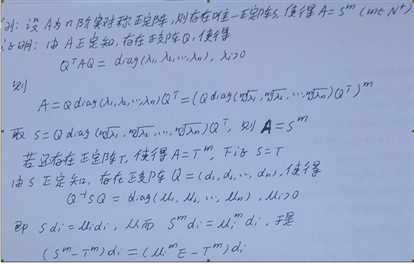 例: 设A为n阶实对称正定阵,则存在唯一正定阵S,使得A=S^m (m∈N^+)
证明: 由A正定知,存在正交阵Q,使得
Q^TAQ = diag(λ₁,λ₂,…,λₙ), λᵢ>0
则
A=Q diag(λ₁,λ₂,…,λₙ)Q^T=(Q diag(^m√λ₁,^m√λ₂,…,^m√λₙ)Q^T)^m
取 S=Q diag(^m√λ₁,^m√λ₂,…,^m√λₙ)Q^T, 则 A=S^m
若还存在正定阵T,使得A=T^m,下证S=T
由S正定知,存在正交阵Q=(α₁,α₂,…,αₙ),使得
Q^-1SQ = diag(μ₁,μ₂,…,μₙ), μᵢ>0
即 Sαᵢ=μᵢαᵢ, 从而 S^mαᵢ=μᵢ^mαᵢ, 于是
(S^m-T^m)αᵢ=(μᵢ^mE-T^m)αᵢ